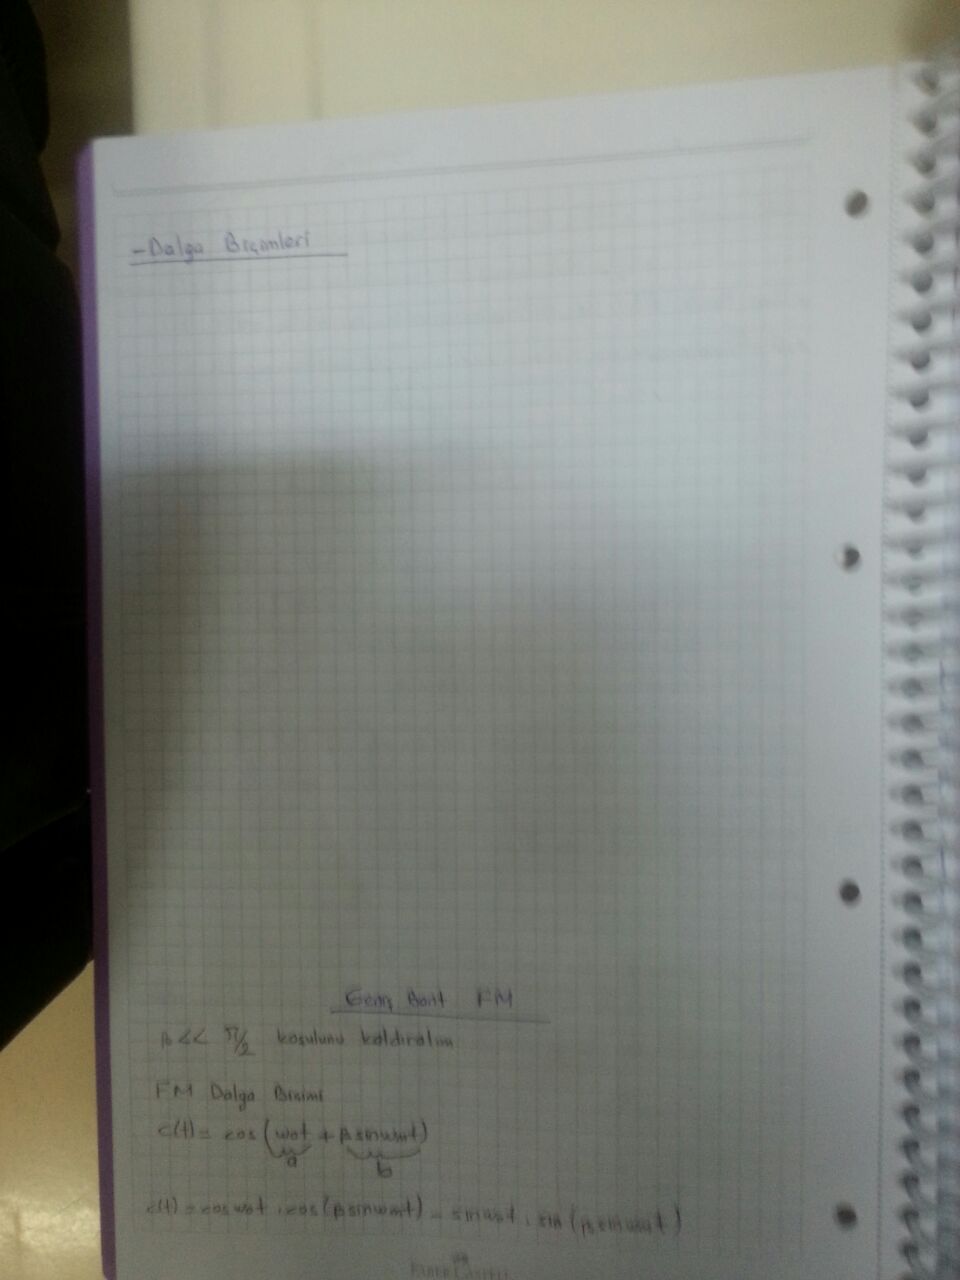 - Dalga Biçimleri
Geniş Bant FM
β << π/2 koşulunu kaldıralım
FM Dalga Biçimi
c(t) = cos (wot + β sinwmt)
a b
c(t) = cos wot . cos (β sinwmt) - sinwot . sin (β sinwmt)